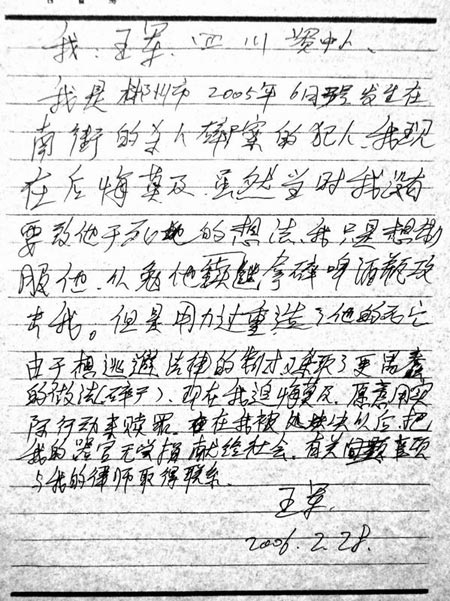 我:王军.四川资中人、
我是郴州市2005年6月 发生在
南街的杀人碎尸案的犯人.我现
在后悔莫及.虽然当时我没有
要致他于死地的想法.我只是想制
服他.以免他 拿碎啤酒瓶攻
击我。但是用力过重造了他的死亡
由于想逃避法律的制才又采取了更愚蠢
的做法(碎尸).现在我追悔莫及.愿意用实
际行动来赎罪.在我被处决以后.把
我的器官无尝捐献给社会.有关 事项
与我的律师取得联系.
王军.
2006.2.28.